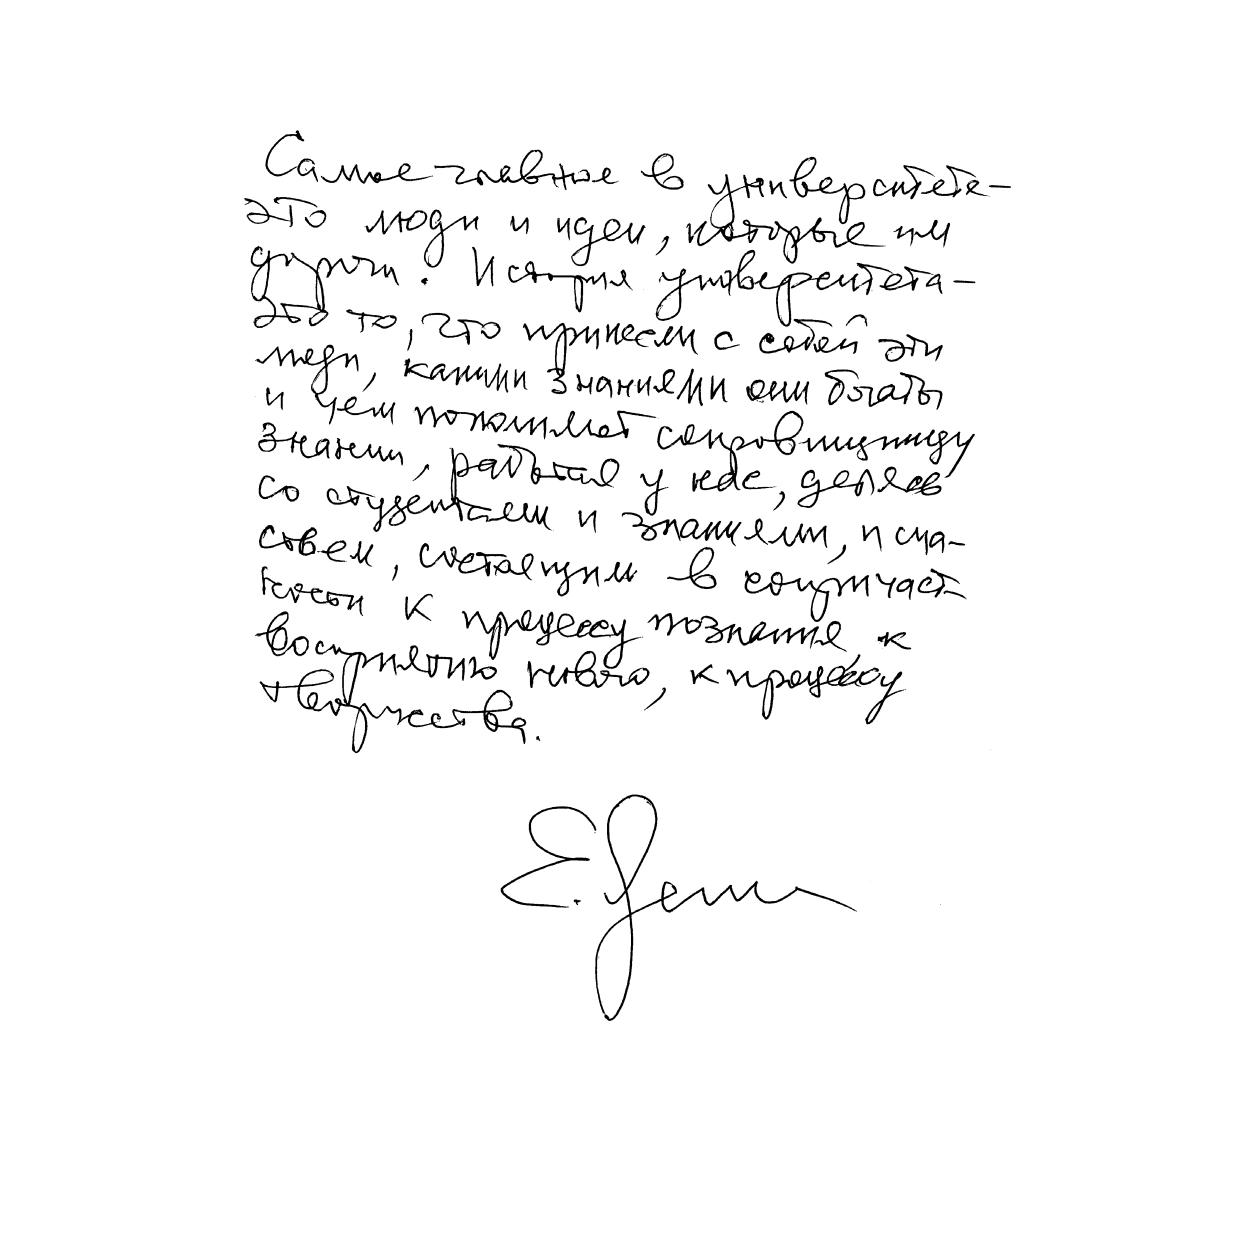 Самое главное в университете –
это люди и идеи, которые им
дороги. История университета –
это то, что принесли с собой эти
люди, какими знаниями они богаты
и чем пополняют сокровищницу
знаний, работая у нас, делясь
со студентами и знаниями, и сча-
стьем, состоящим в сопричаст-
ности к процессу познания, к
восприятию нового, к процессу
творчества.
Е.